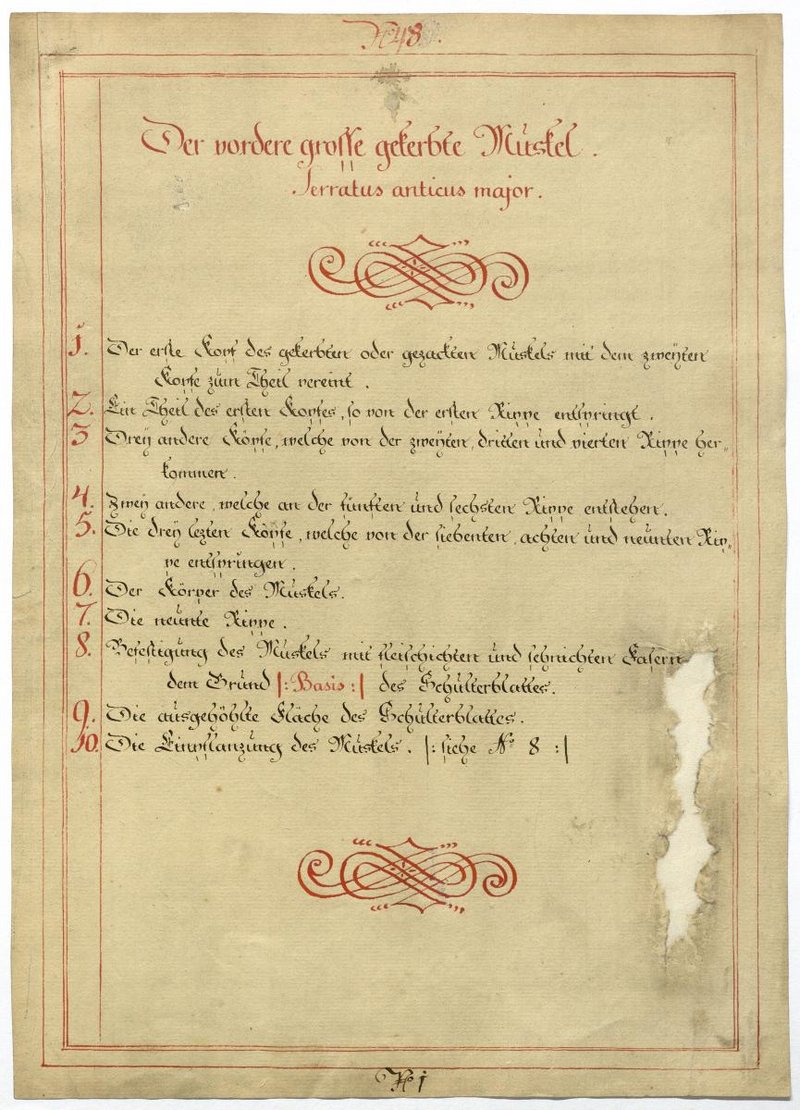 No 48.
Der vordere grosse gekerbte Muskel.
Serratus anticus major.
1. Der erste Kopf des gekerbten oder gezackten Muskels mit dem zweyten
Kopfe zum Theil vereint.
2. Ein Theil des ersten Kopfes, so von der ersten Rippe entspringt.
3 Drey andere Köpfe, welche von der zweyten, dritten und vierten Rippe her-
kommen.
4. Zwey andere, welche an der fünften und sechsten Rippe entstehen.
5. Die drey lezten Köpfe, welche von der siebenten, achten und neunten Rip-
pe entspringen.
6. Der Körper des Muskels.
7. Die neunte Rippe.
8. Befestigung des Muskels mit fleischichten und sehnichten Fasern
dem Grund |: Basis :| des Schulterblattes.
9. Die ausgehöhlte Fläche des Schulterblattes.
10. Die Einpflanzung des Muskels. |: siehe No 8 :|